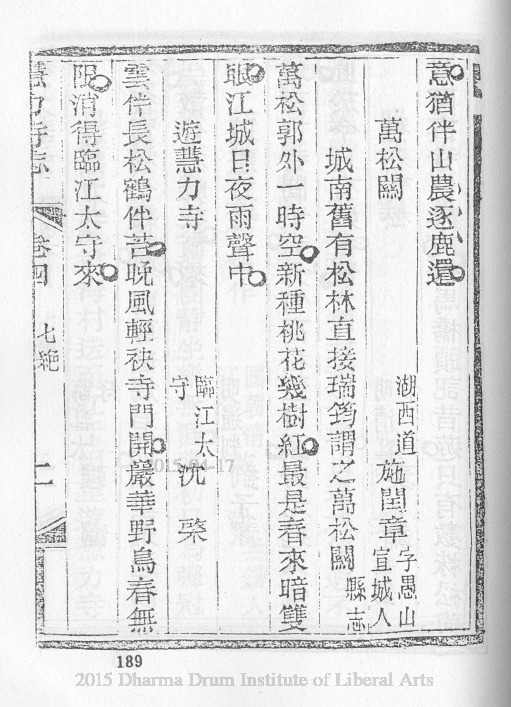 意猶伴山農逐鹿還
萬松關 湖西道施閏章字愚山宣城人
城南舊有松林直接瑞筠謂之萬松關縣志
萬松郭外一時空新種桃花幾樹紅最是春來暗雙
眼江城日夜雨聲中
遊慧力寺 臨江太守沈棨
雲伴長松鶴伴苔晚風輕袂寺門開嚴華野鳥春無
限消得臨江太守來
慧力寺志 卷四 七絕 二
2015-04-17
189
2015 Dharma Drum Institute of Liberal Arts